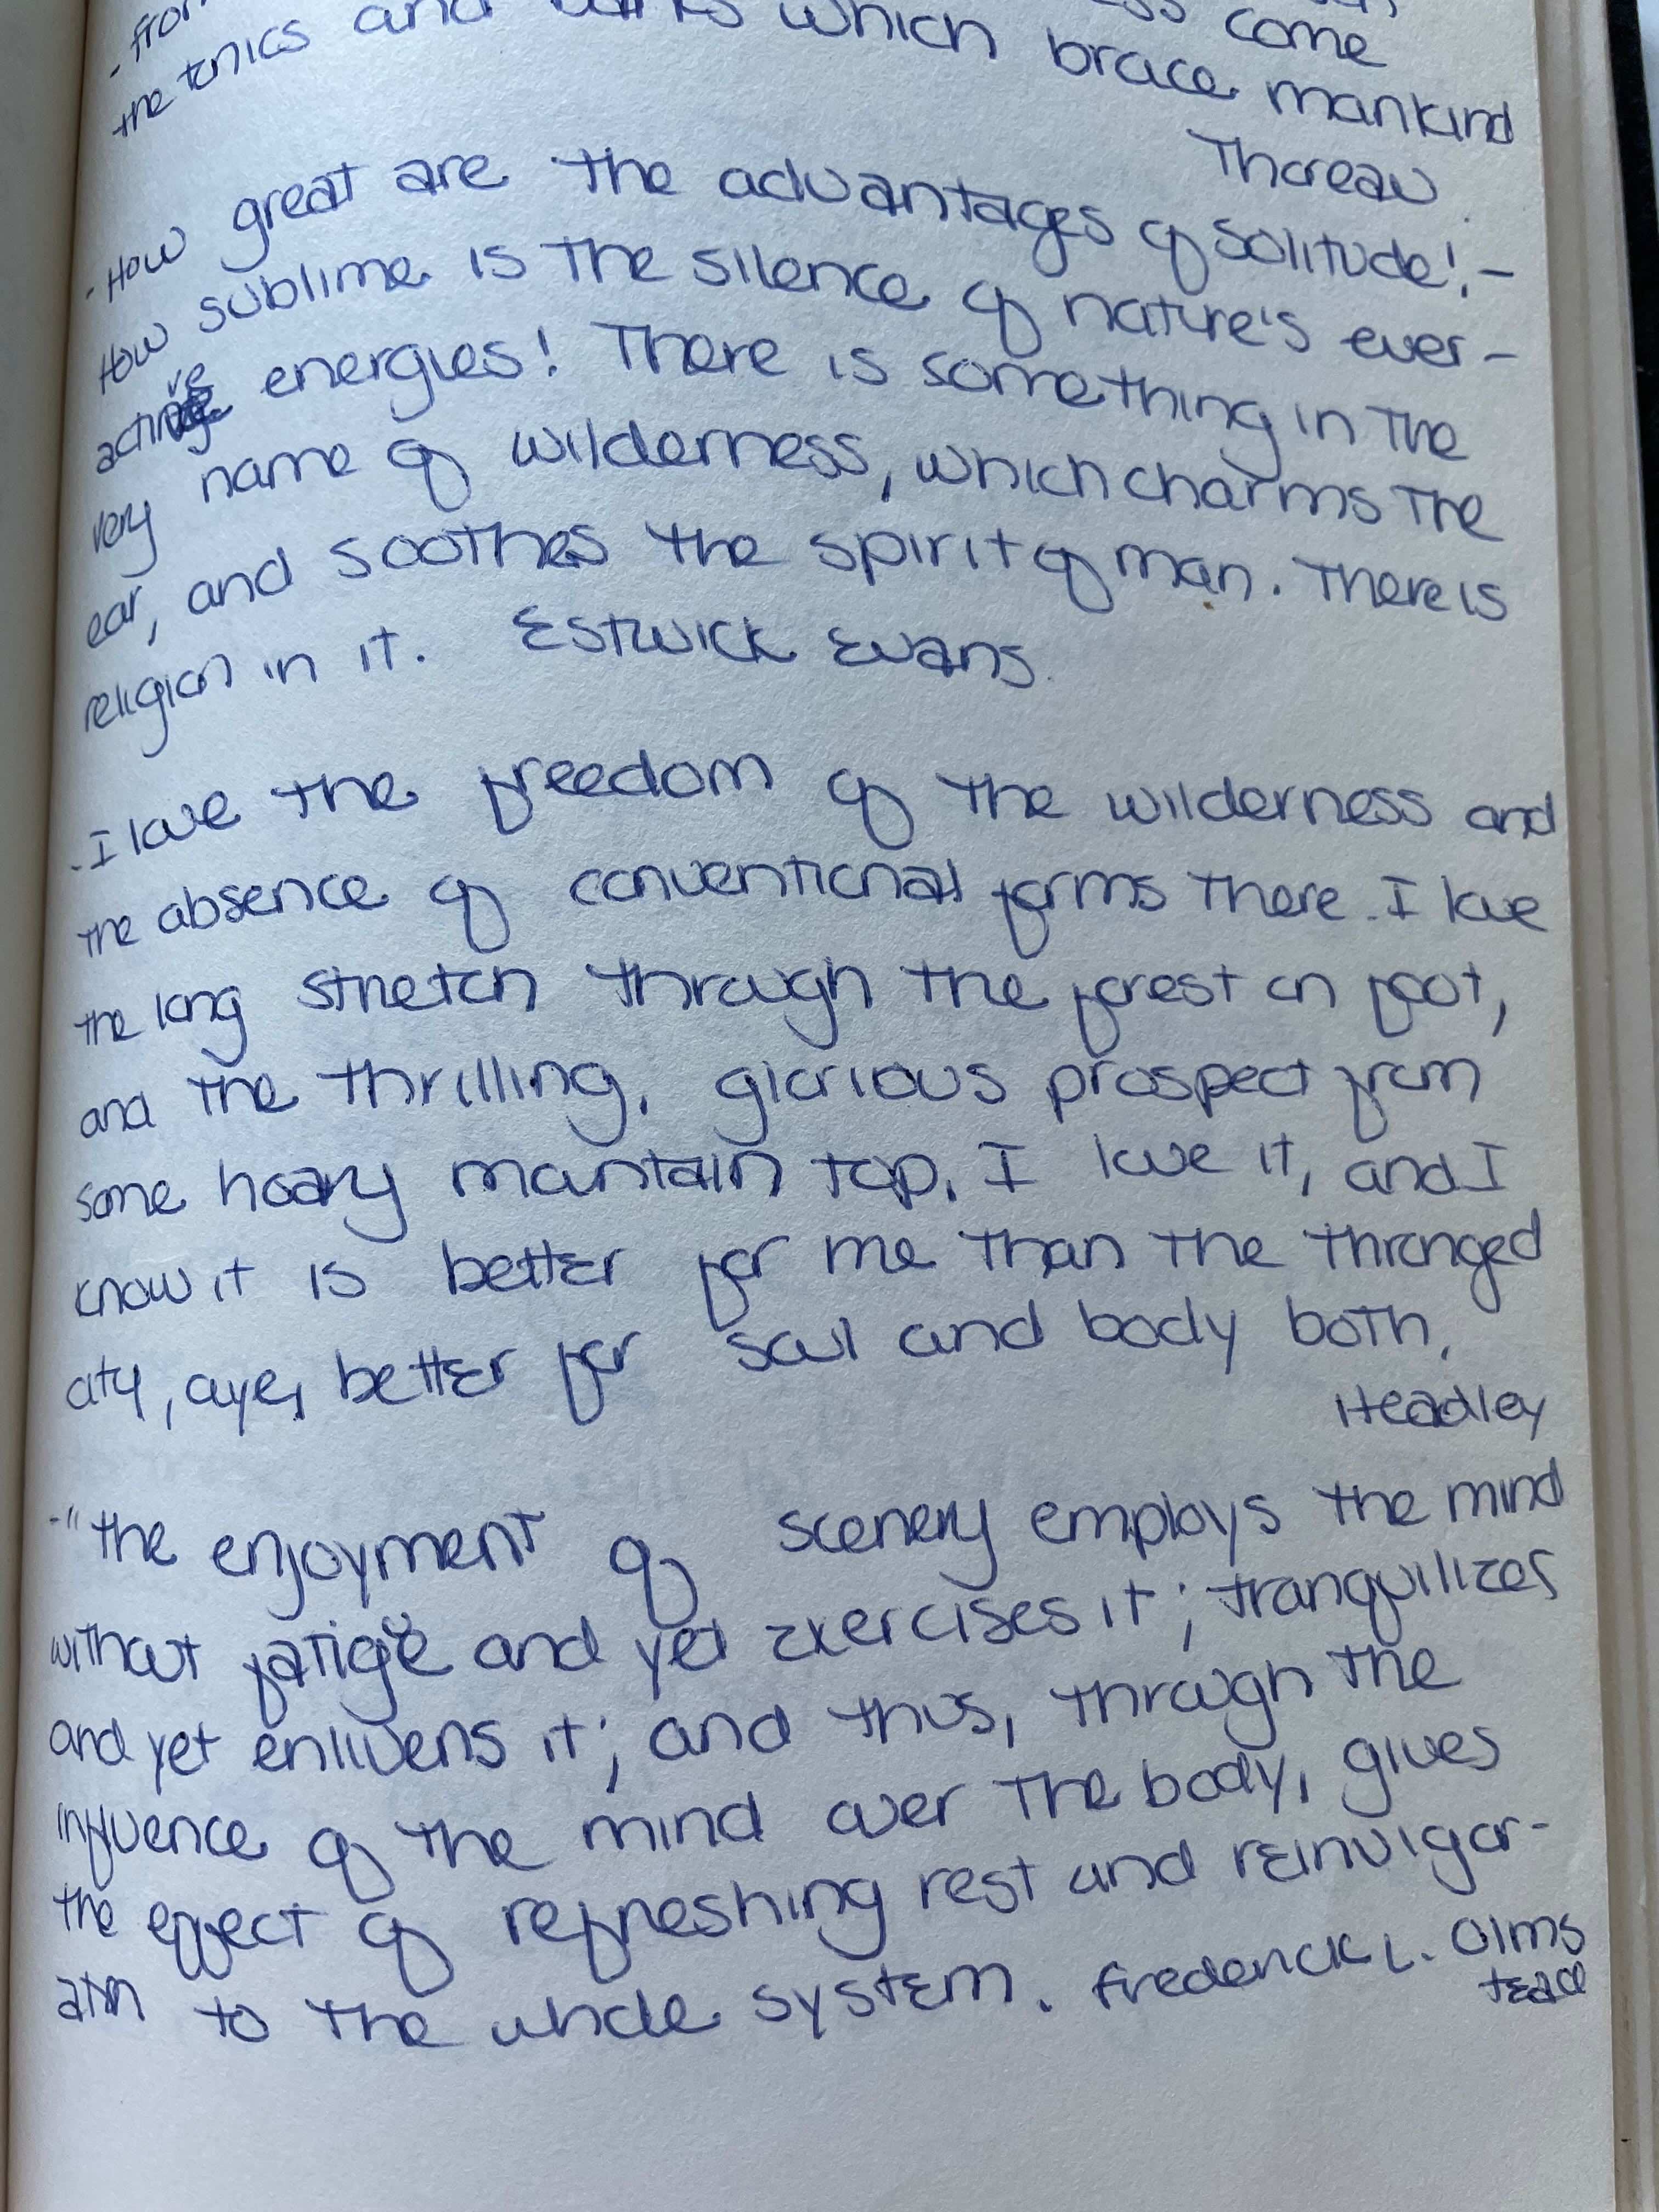 - from
come
the tonics and barks which brace mankind
Thoreau.
- How great are the advantages of solitude! -
How sublime is the silence of nature's ever -
active energies! There is something in the
very name of wilderness, which charms the
ear, and soothes the spirit of man. There is
religion in it. Estwick Evans.
- I love the freedom of the wilderness and
the absence of conventional forms there. I love
the long stretch through the forest on foot,
and the thrilling, glorious prospect from
some hoary mountain top. I love it, and I
know it is better for me than the thronged
city, aye, better for soul and body both.
Headley
- "the enjoyment of scenery employs the mind
without fatigue and yet exercises it; tranquilizes
and yet enlivens it; and thus, through the
influence of the mind over the body, gives
the effect of refreshing rest and reinvigor-
ation to the whole system. Frederick L. Olms
tead